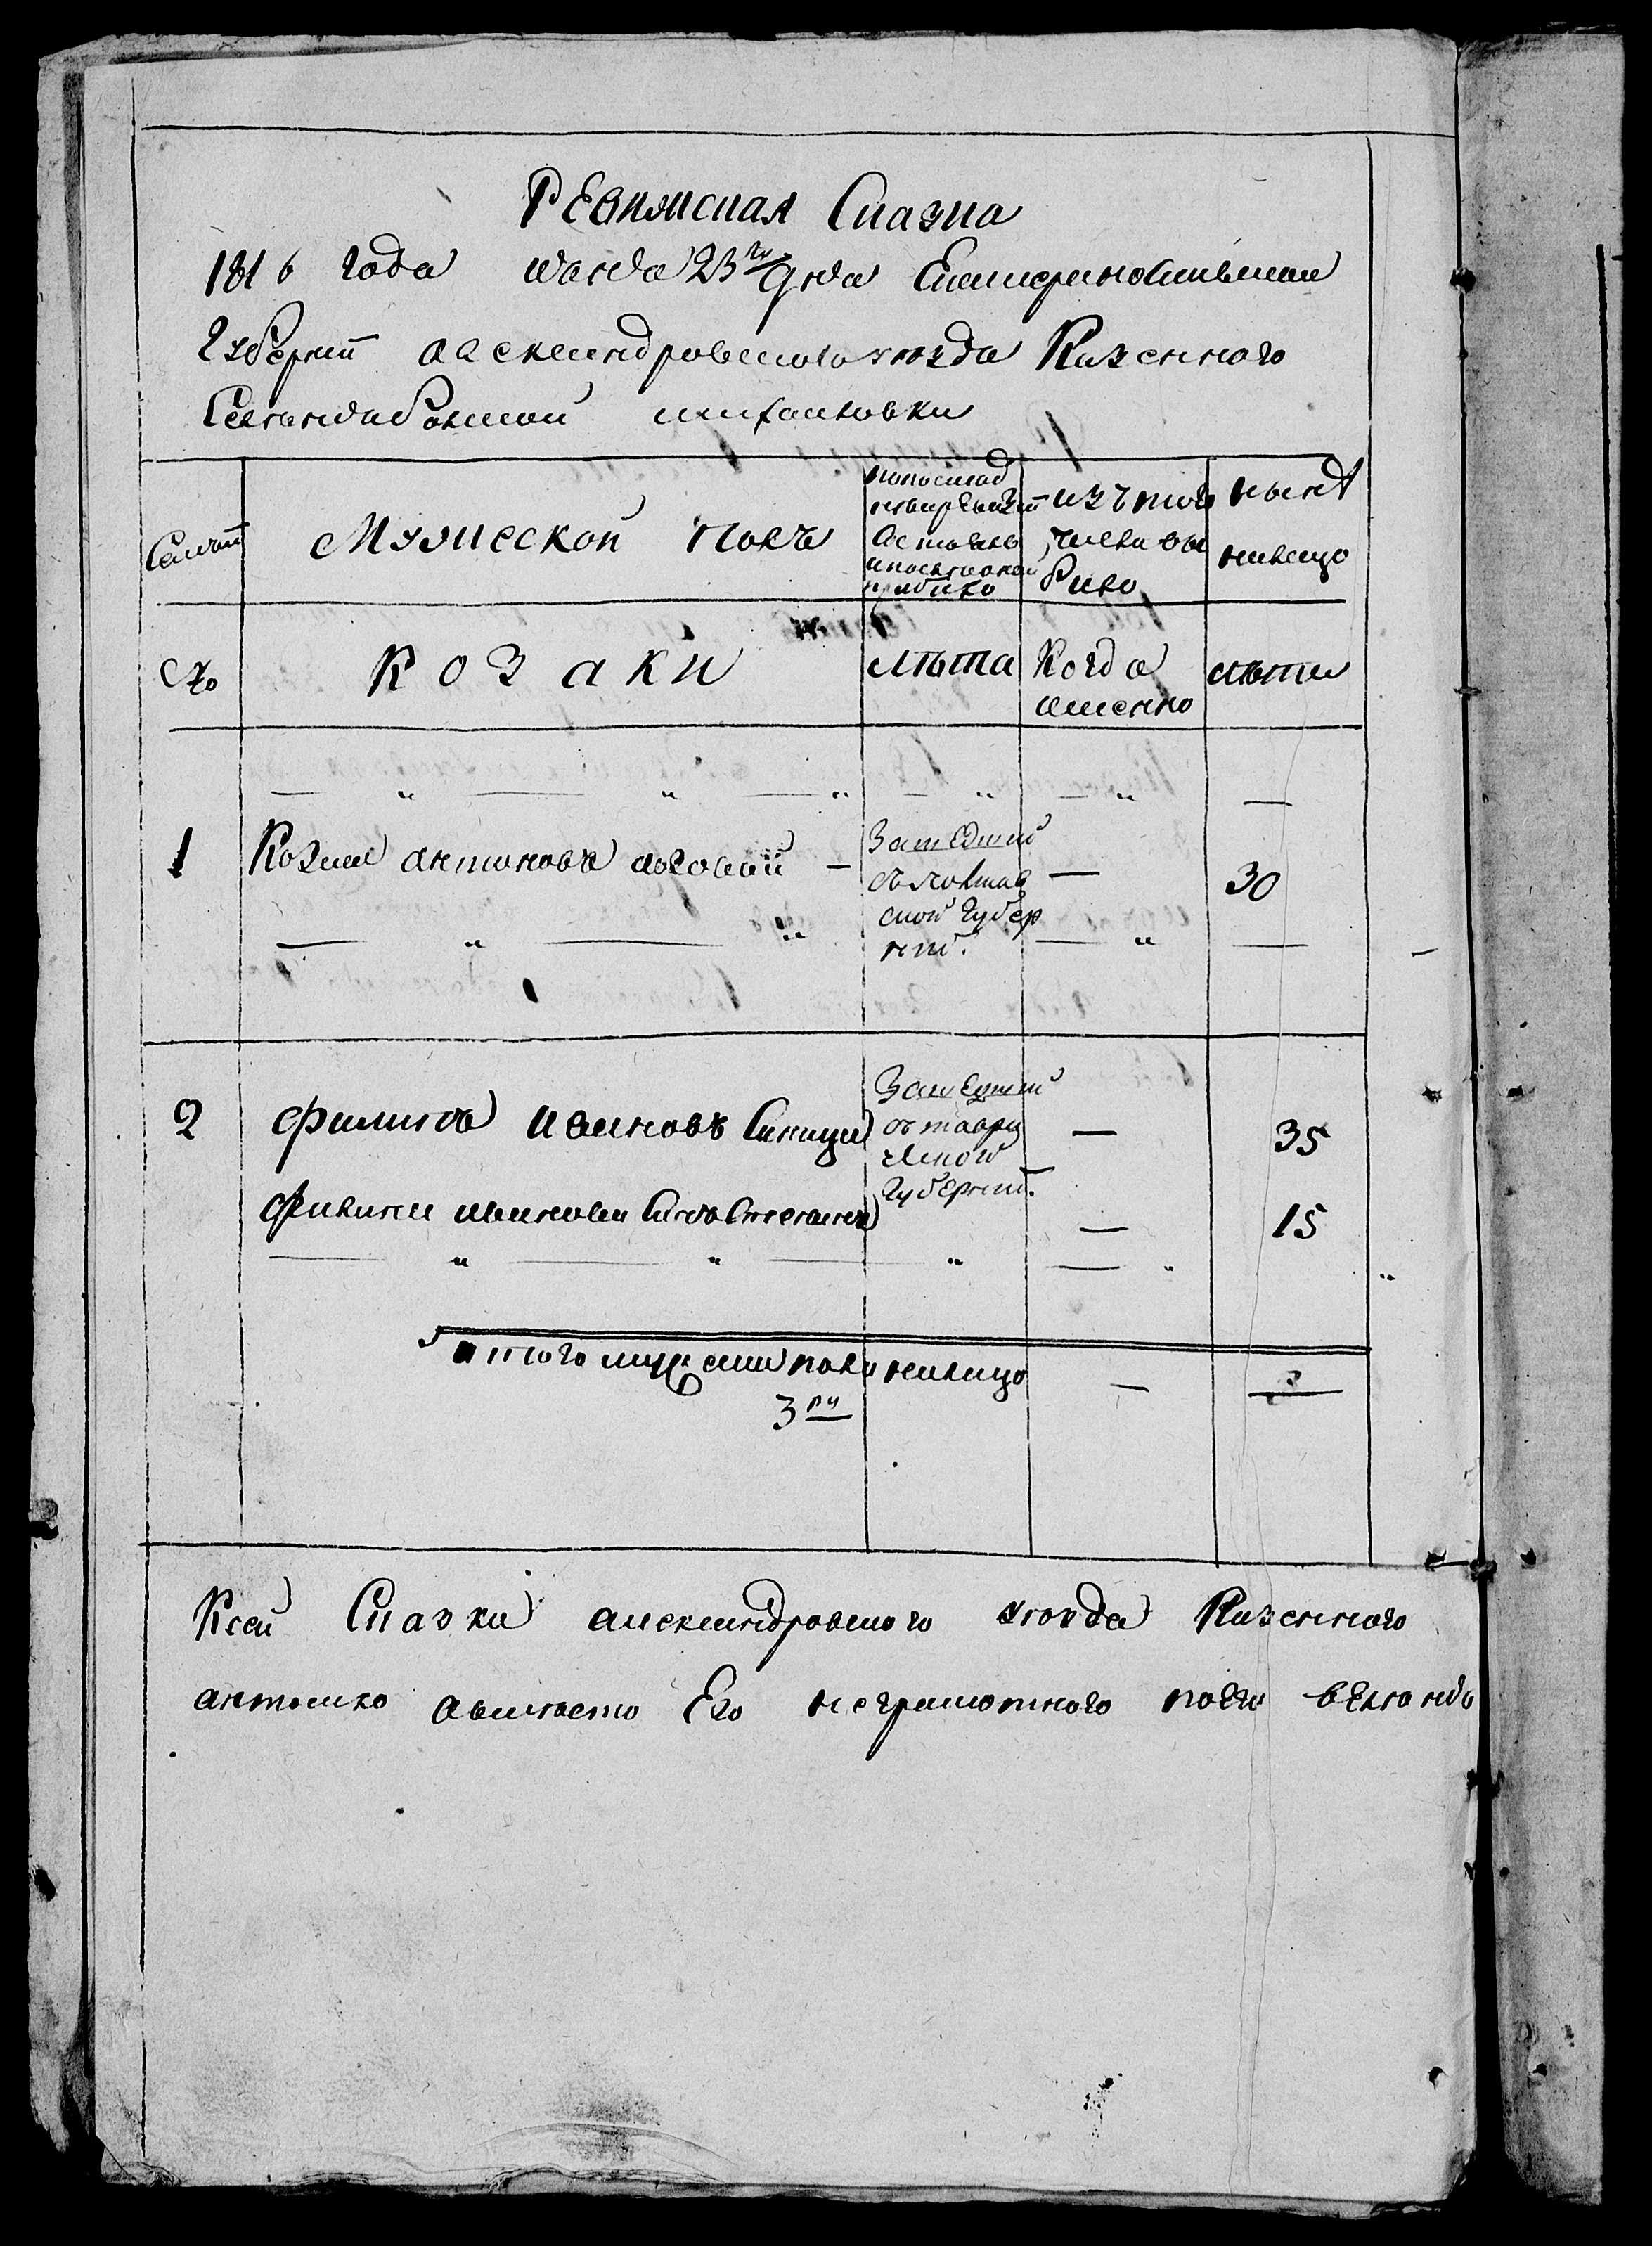 Ревижская Сказка
1816 года июня 23го дня Екатеринославской
Губернїи александровского уезда Казенного
Селения михайловки
Семьи
Мужеской полъ
по последней ревизїи состояло и после оной прибыло
изъ того числа выбыло
ныне налицо
№
Козаки
лета
Когда именно
лета
1 Козма антоновъ Зашедшїй съ полтавской губернїи — 30
2 Филипъ ивановъ Синица Зашедшїй съ таврической Губернїи — 35
Филипа иванова Сынъ Степанъ — 15
итого мужеска пола налицо — 3
3ри
К сей Сказки александровского уезда Казенного
антонъ а вместо Его неграмотного по его веленю